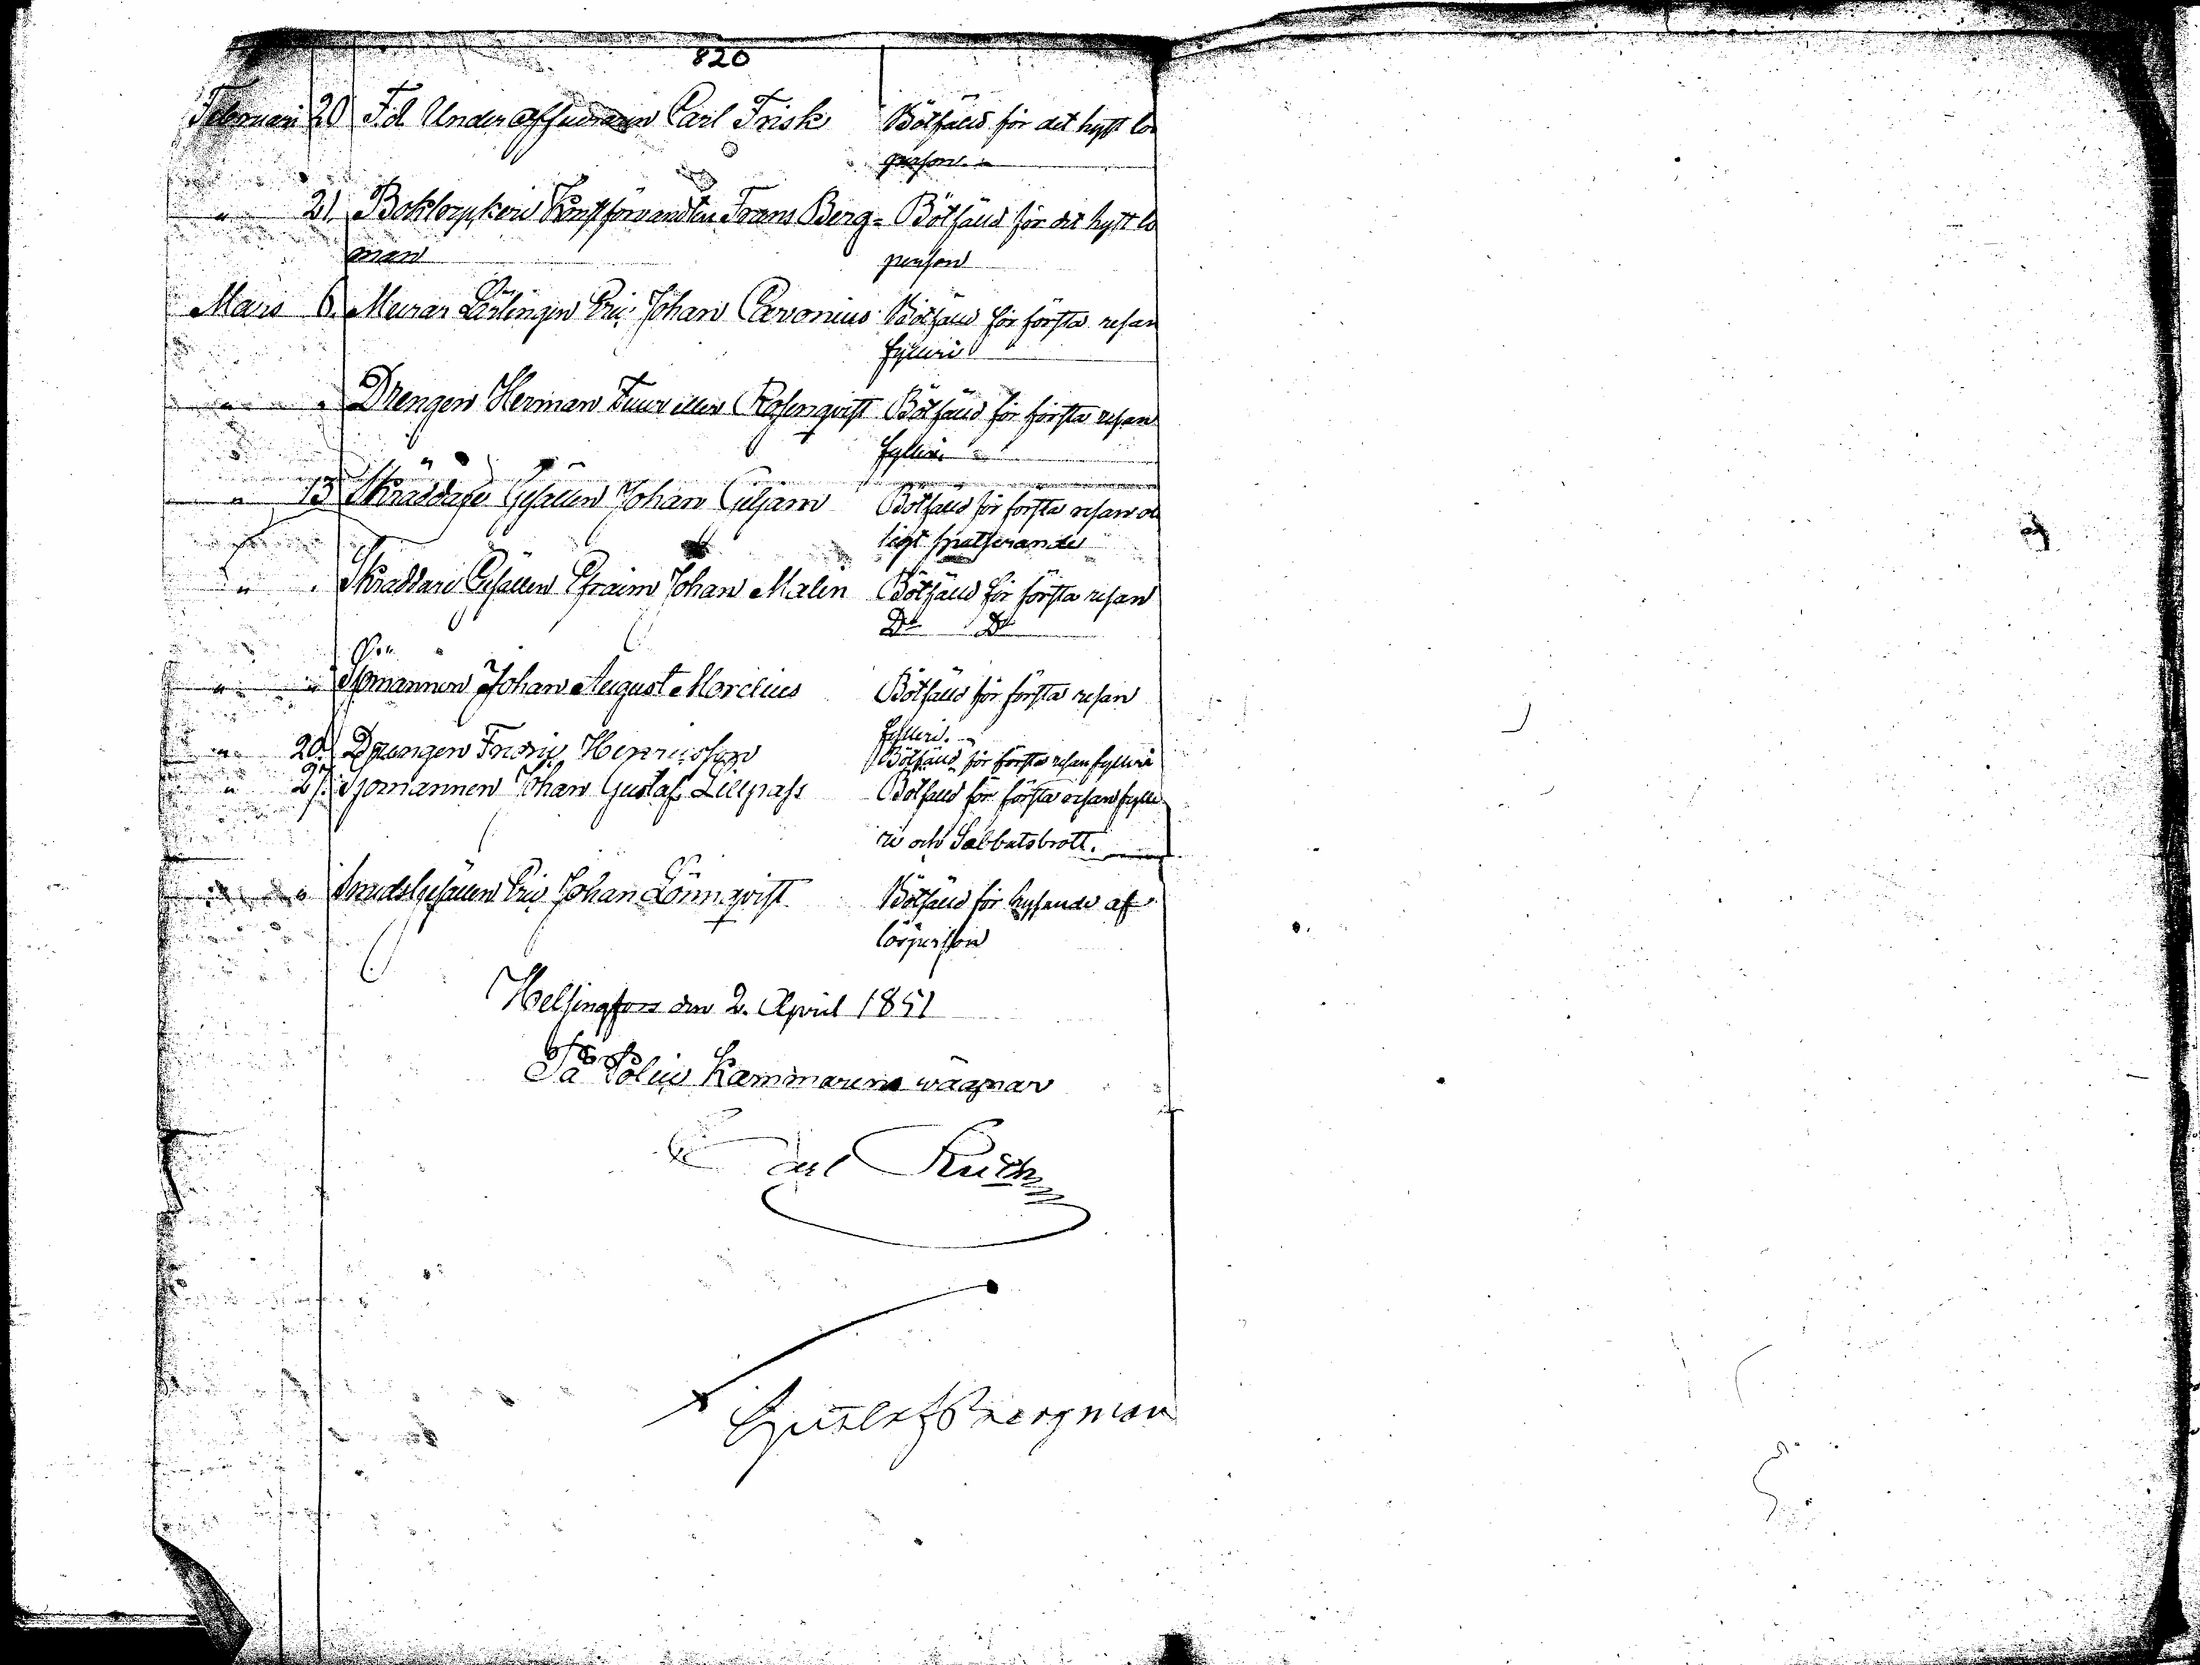 820
Februari 20 F.d. Under officeraren Carl Frisk Bötfäld för det hyst lös
person.
" 21 Boktryckeri Konstförvandten Frans Berg= Bötfäld för det hyst lös
man person
Mars 6. Murar Lärlingen Eric Johan Carvonius Bötfäld för första resan
fylleri
" " Drengen Herman Fuur eller Rosenqvist Bötfäld för första resan
fylleri.
" 13 Skräddare Gesällen Johan Ciljam Bötfäld för första resan
" " Skräddare Gesällen Efraim Johan Malin Bötfäld för första resan
Do Do
" " Sjömannen Johan August Morelius Bötfäld för första resan
fylleri.
" 20. Drengen Fredric Henricsson Bötfäld för första resan fylleri
" 27. Sjömannen Johan Gustaf Lillpass Bötfäld för första resan fylle
ri och Sabbatsbrott.
" " Smedsgesällen Eric Johan Lönnqvist Bötfäld för hysande af
lösperson
Helsingfors den 2. April 1851
På Polise Kammarens wägnar
Carl
Gustaf Bergman